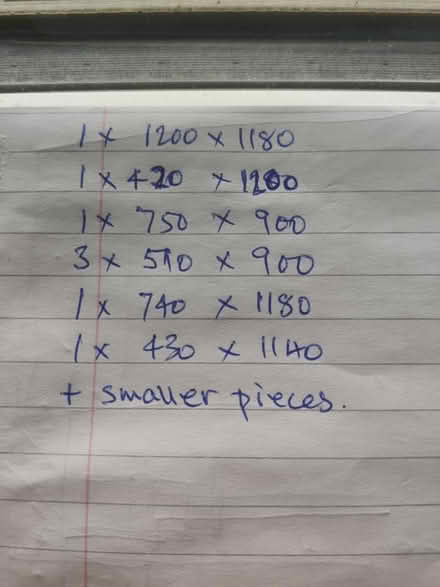 1 x 1200 x 1180
1 x 420 x 1200
1 x 750 x 900
3 x 510 x 900
1 x 740 x 1180
1 x 430 x 1140
+ smaller pieces.